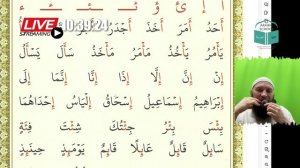 LIVE
STREAMING
10:39:24
أ إ ئ ؤ ـئـ ء
أَحَدُ أَمَرَ أَخَذَ أَجْدَرُ
يَأْمُرُ يَأْخُذُ مَأْمَرٌ مَأْخَذٌ سَأَلَ يَسْأَلُ
إِنْ إِنَّ إِلَّا إِذَا إِنَّا إِنَّمَا إِلَى
إِبْرَاهِيمُ إِسْمَاعِيلُ إِسْحَاقُ إِلْيَاسُ إِحْدَاهُمَا
بِئْسَ بِئْرٌ جِئْتُكَ شِئْتَ فِئَةٍ
سَائِلٌ قَائِلٌ عَائِلًا قَائِمٌ يَوْمَئِذٍ حِينَئِذٍ